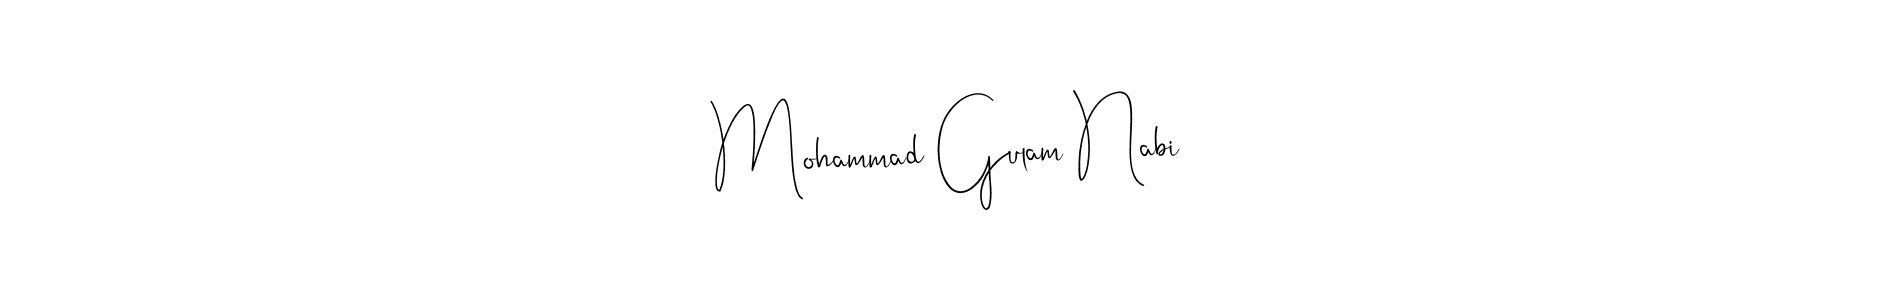 Mohammad Gulam Nabi